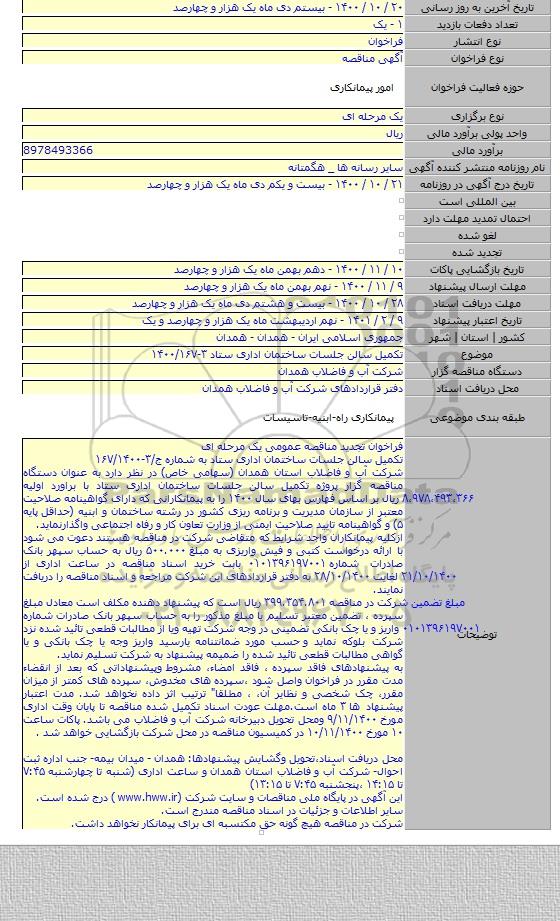 تاریخ آخرین به روز رسانی ۲۰ / ۱۰ / ۱۴۰۰ - بیستم دی ماه یک هزار و چهارصد
تعداد دفعات بازدید ۱ - یک
نوع انتشار فراخوان
نوع فراخوان آگهی مناقصه
حوزه فعالیت فراخوان امور پیمانکاری
نوع برگزاری یک مرحله ای
واحد پولی برآورد مالی ریال
برآورد مالی 8978493366
نام روزنامه منتشر کننده آگهی سایر رسانه ها _ هگمتانه
تاریخ درج آگهی در روزنامه ۲۱ / ۱۰ / ۱۴۰۰ - بیست و یکم دی ماه یک هزار و چهارصد
بین المللی است
احتمال تمدید مهلت دارد
لغو شده
تجدید شده
تاریخ بازگشایی پاکات ۱۰ / ۱۱ / ۱۴۰۰ - دهم بهمن ماه یک هزار و چهارصد
مهلت ارسال پیشنهاد ۹ / ۱۱ / ۱۴۰۰ - نهم بهمن ماه یک هزار و چهارصد
مهلت دریافت اسناد ۲۸ / ۱۰ / ۱۴۰۰ - بیست و هشتم دی ماه یک هزار و چهارصد
تاریخ اعتبار پیشنهاد ۹ / ۲ / ۱۴۰۱ - نهم اردیبهشت ماه یک هزار و چهارصد و یک
کشور | استان | شهر جمهوری اسلامی ایران - همدان - همدان
موضوع تکمیل سالن جلسات ساختمان اداری ستاد ۳-۱۴۰۰/۱۶۷
دستگاه مناقصه گزار شرکت آب و فاضلاب همدان
محل دریافت اسناد دفتر قراردادهای شرکت آب و فاضلاب همدان
طبقه بندی موضوعی پیمانکاری راه-ابنیه-تاسیسات
توضیحات
فراخوان تجدید مناقصه عمومی یک مرحله ای
تکمیل سالن جلسات ساختمان اداری ستاد به شماره ج/۳-۱۶۷/۱۴۰۰
شرکت آب و فاضلاب استان همدان (سهامی خاص) در نظر دارد به عنوان دستگاه
مناقصه گزار پروژه تکمیل سالن جلسات ساختمان اداری ستاد با براورد اولیه
۸،۹۷۸،۴۹۳،۳۶۶ ریال بر اساس فهارس بهای سال ۱۴۰۰ را به پیمانکارانی که دارای گواهینامه صلاحیت
معتبر از سازمان مدیریت و برنامه ریزی کشور در رشته ساختمان و ابنیه (حداقل پایه
۵) و گواهینامه تایید صلاحیت ایمنی از وزارت تعاون کار و رفاه اجتماعی واگذارنماید.
ازکلیه پیمانکاران واجد شرایط که متقاضی شرکت در مناقصه هستند دعوت می شود
با ارائه درخواست کتبی و فیش واریزی به مبلغ ۵۰۰،۰۰۰ ریال به حساب سپهر بانک
صادرات شماره ۰۱۰۱۳۹۶۱۹۷۰۰۱ بابت خرید اسناد مناقصه در ساعت اداری از
۲۱/۱۰/۱۴۰۰ لغایت ۲۸/۱۰/۱۴۰۰ به دفتر قراردادهای این شرکت مراجعه و اسناد مناقصه را دریافت
نمایند.
مبلغ تضمین شرکت در مناقصه ۳۹۹،۳۵۴،۸۰۱ ریال است که پیشنهاد دهنده مکلف است معادل مبلغ
سپرده ، تضمین معتبر تسلیم یا مبلغ مذکور را به حساب سپهر بانک صادرات شماره
۰۱۰۱۳۹۶۱۹۷۰۰۱ واریز و یا چک بانکی تضمینی در وجه شرکت تهیه ویا از مطالبات قطعی تائید شده نزد
شرکت بلوکه نماید و حسب مورد ضمانتنامه یارسید واریز وجه یا چک بانکی و یا
گواهی مطالبات قطعی تائید شده را ضمیمه پیشنهاد به شرکت تسلیم نماید.
به پیشنهادهای فاقد سپرده ، فاقد امضاء، مشروط وپیشنهاداتی که بعد از انقضاء
مدت مقرر در فراخوان واصل شود ،سپرده های مخدوش، سپرده های کمتر از میزان
مقرر، چک شخصی و نظایر آن، ، مطلقا" ترتیب اثر داده نخواهد شد. مدت اعتبار
پیشنهاد ها ۳ ماه است.مهلت عودت اسناد تکمیل شده مناقصه تا پایان وقت اداری
مورخ ۹/۱۱/۱۴۰۰ ومحل تحویل دبیرخانه شرکت آب و فاضلاب می باشد. پاکات ساعت
۱۰ مورخ ۱۰/۱۱/۱۴۰۰ در کمیسیون مناقصه در محل شرکت بازگشایی خواهد شد .
محل دریافت اسناد،تحویل وگشایش پیشنهادها: همدان - میدان بیمه- جنب اداره ثبت
احوال- شرکت آب و فاضلاب استان همدان و ساعت اداری (شنبه تا چهارشنبه ۷:۴۵
تا ۱۴:۱۵ ،پنجشنبه ۷:۴۵ تا ۱۳:۱۵)
این آگهی در پایگاه ملی مناقصات و سایت شرکت (www.hww.ir ) درج شده است.
سایر اطلاعات و جزئیات در اسناد مناقصه مندرج است.
شرکت در مناقصه هیچ گونه حق مکتسبه ای برای پیمانکار نخواهد داشت.